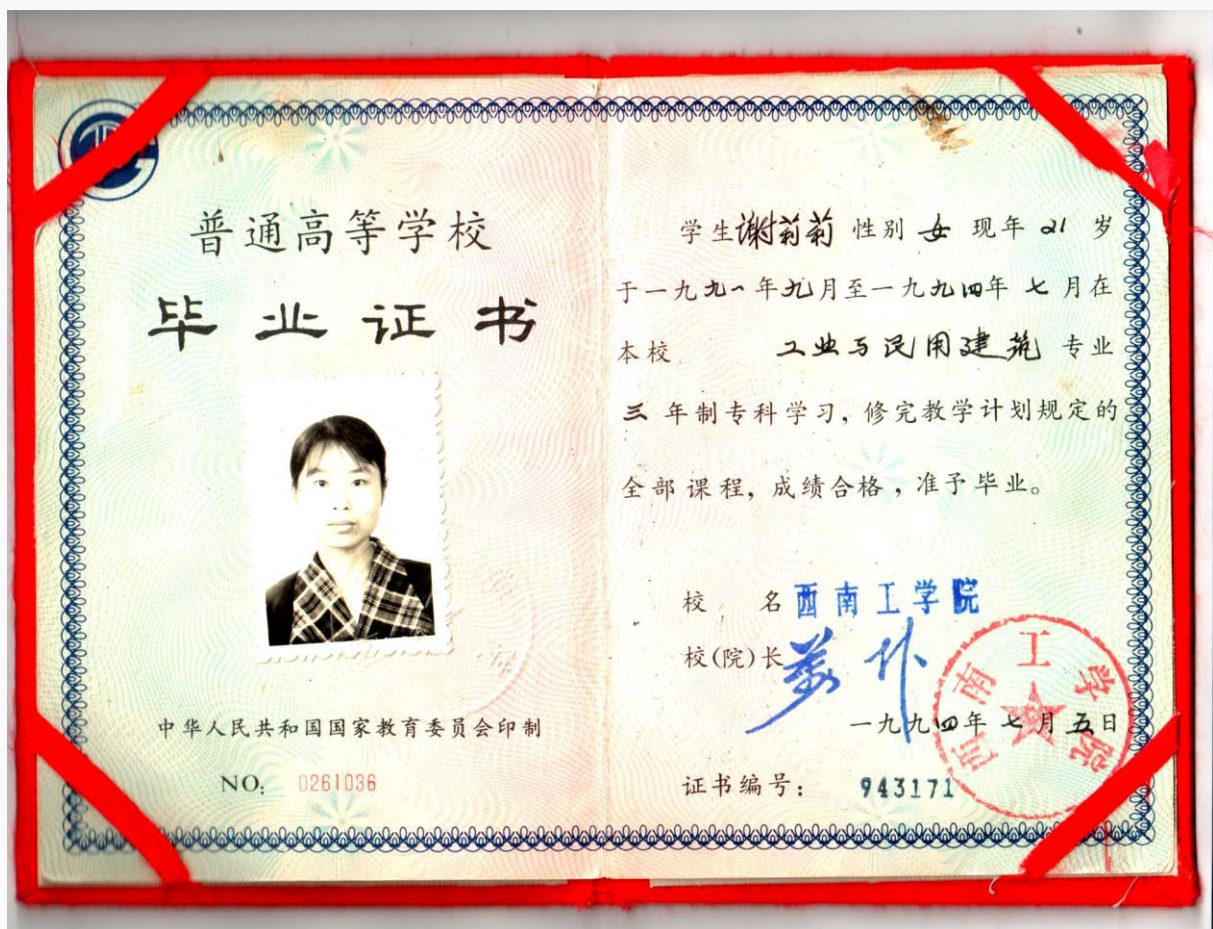 普通高等学校
毕业证书
中华人民共和国国家教育委员会印制
NO: 0261036
学生谢莉莉 性别 女 现年 21 岁
于一九九一年九月至一九九四年七月在
本校 工业与民用建筑 专业
三年制专科学习，修完教学计划规定的
全部课程，成绩合格，准予毕业。
校 名 西南工学院
校(院)长
一九九四年七月五日
证书编号： 943171
西南工学院